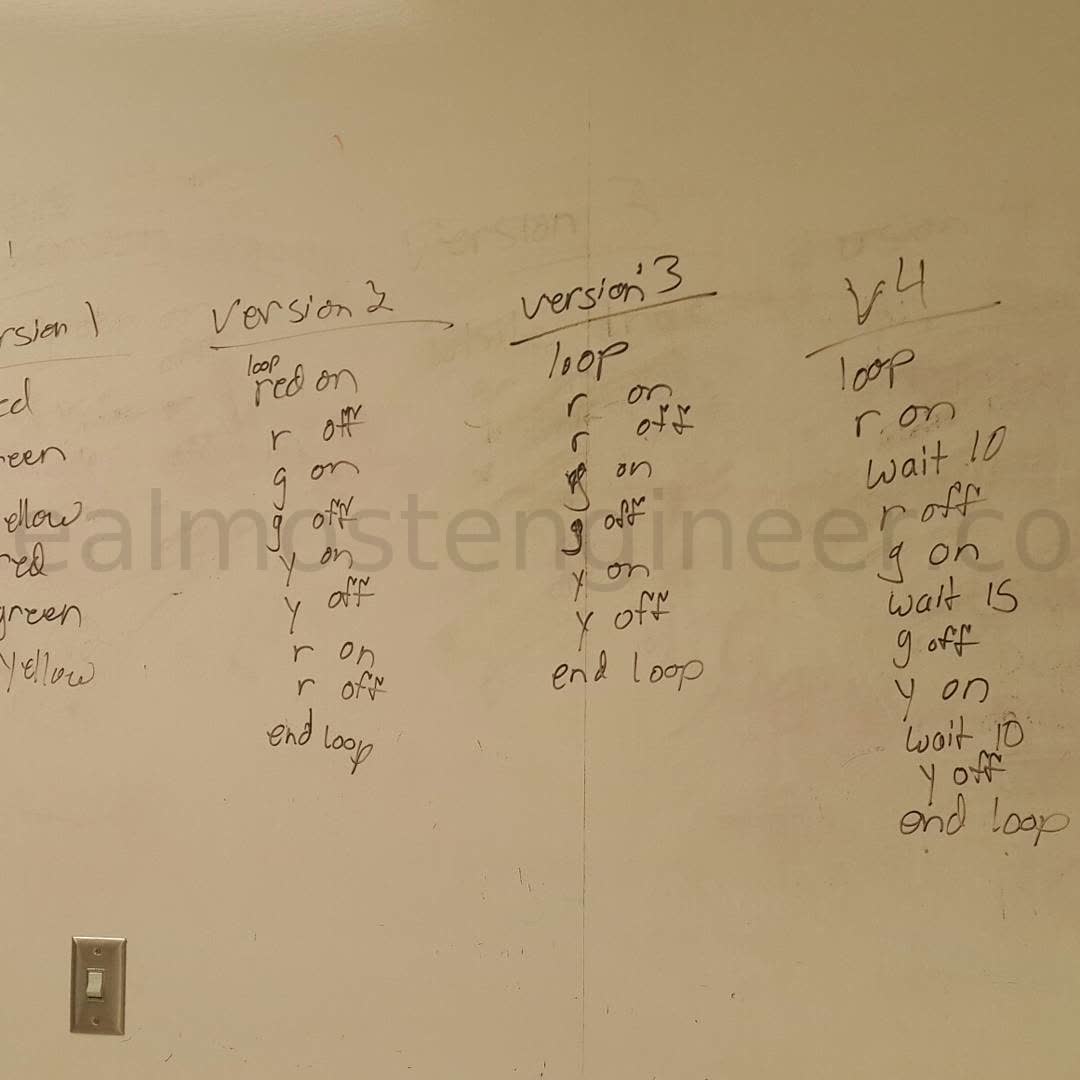 version 1
red
green
yellow
red
green
yellow
version 2
loop
red on
r off
g on
g off
y on
y off
r on
r off
end loop
version 3
loop
r on
r off
g on
g off
y on
y off
end loop
v4
loop
r on
wait 10
r off
g on
wait 15
g off
y on
wait 10
y off
end loop
ealmostengineer.co